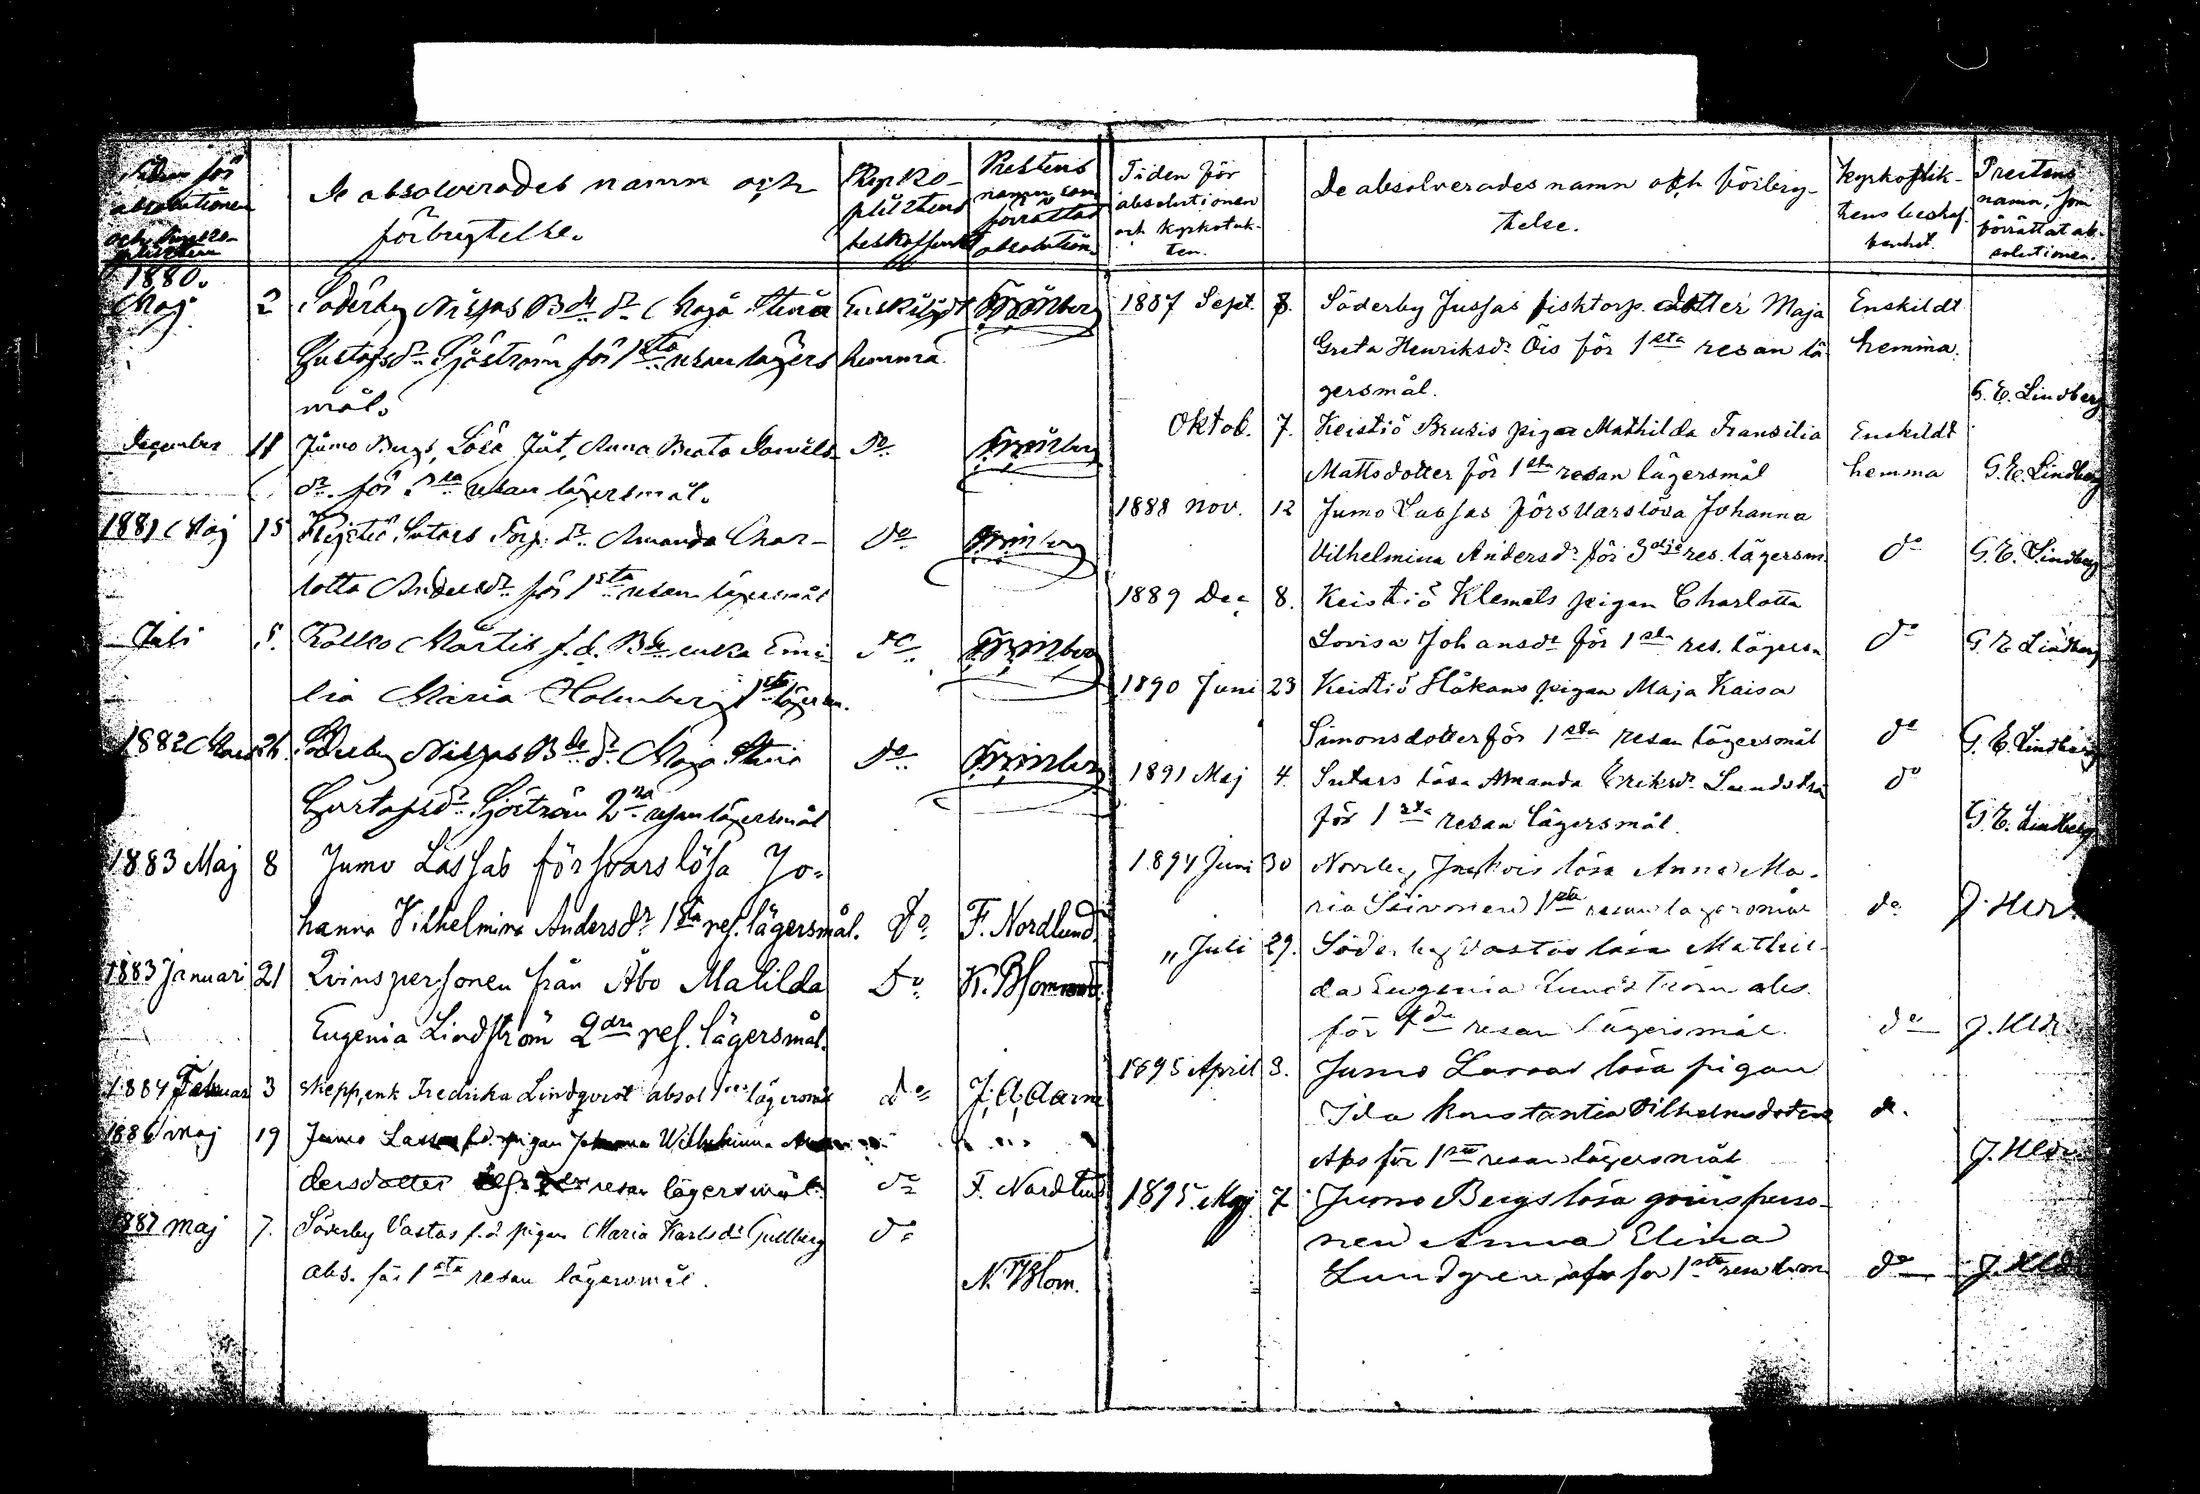 Tiden för
absolutionen
och kyrko-
plikten
De absolverades namn och
förbrytelse.
Kyrko-
pliktens
beskaffenhet
Prestens
namn, som
förrättat
absolution.
1880.
Maj 2 Söderby Nissas Bde dr Maja Stina Enskildt
Gustafsdr Sjöström för 1sta resan lägers hemma
mål.
December 11 Jumo Bergs, Lösa Anna Beata do
dr för resan lägersmål.
1881 Maj 15 Keistiö Sutars Torp. dr Amanda Char- do
lotta Andersdr för 1sta resan lägersmål
Juli 5. Martis f.d. Bde enka Emi- do
lia Maria Holmberg 1sta lägersm.
1882 Mars 26. Söderby Nissas Bde dr Maja Stina do
Gustafsdr Sjöström 2dra resan lägersmål
1883 Maj 8 Jumo Lassas försvarslösa Jo-
hanna Vilhelmina Andersdr 1sta res. lägersmål. do F. Nordlund
1883 Januari 21 Qvinspersonen från Åbo Matilda do K. Blom
Eugenia Lindström 2dra res. lägersmål.
1884 Februari 3 Skepp. enk Fredrika Lindqvist absol lägersmål do J. A. Aarne
1886 maj 19 Jumo Lassas f.d. pigan Johanna Wilhelmina An
dersdotter resan lägersmål. do F. Nordlund
1887 maj 7. Söderby Vastas f.d. pigan Maria Karlsdr Gullberg do
abs. för 1sta resan lägersmål. N. Blom.
Tiden för
absolutionen
och kyrkotuk-
ten.
De absolverades namn och förbry-
telse.
Kyrkoplik-
tens beskaf-
fenhet.
Prestens
namn, som
förrättat ab-
solutionen.
1887 Sept. 8. Söderby Jussas fisktorp. dotter Maja Enskildt
Greta Henriksdr Öis för 1sta resan lä- hemma.
gersmål. G. E. Lindberg
Oktob. 7. Keistiö Brusis pigan Mathilda Fransilia Enskildt
Mattsdotter för 1sta resan lägersmål hemma G. E. Lindberg
1888 nov. 12 Jumo Lassas försvarslösa Johanna
Vilhelmina Andersdr för 3dje res. lägersm. do G. E. Lindberg
1889 Dec 8. Keistiö Klemets pigan Charlotta
Lovisa Johansdr för 1sta res. lägersm do G. E. Lindberg
1890 Juni 23 Keistiö Håkans pigan Maja Kaisa
Simonsdotter för 1sta resan lägersmål do G. E. Lindberg
1891 Maj 4. Sutars lösa Amanda Eriksdr Lundströ do
för 1sta resan lägersmål. G. E. Lindberg
1894 Juni 30 Norrby lösa Anna Ma-
ria 1sta resan lägersmål do
„ Juli 29. Söderby Vastas lösa Mathil-
da Eugenia Lindström abs.
för 4de resan lägersmål. do
1895 April 3. Jumo Lassas lösa pigan
Ida Konstantia Vilhelmsdotter d.
Abs för 1sta resan lägersmål
1895. Maj 7 Jumo Bergs lösa qvinsperso-
nen Anna Elina
Lundgren abs för 1sta resan do